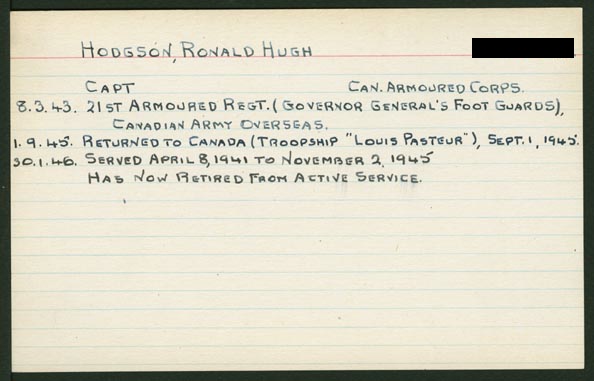 HODGSON, RONALD HUGH
CAPT CAN. ARMOURED CORPS.
8.3.43. 21ST ARMOURED REGT. (GOVERNOR GENERAL'S FOOT GUARDS),
CANADIAN ARMY OVERSEAS.
1.9.45. RETURNED TO CANADA (TROOPSHIP "LOUIS PASTEUR"), SEPT. 1, 1945.
30.1.46. SERVED APRIL 8, 1941 TO NOVEMBER 2, 1945
HAS NOW RETIRED FROM ACTIVE SERVICE.